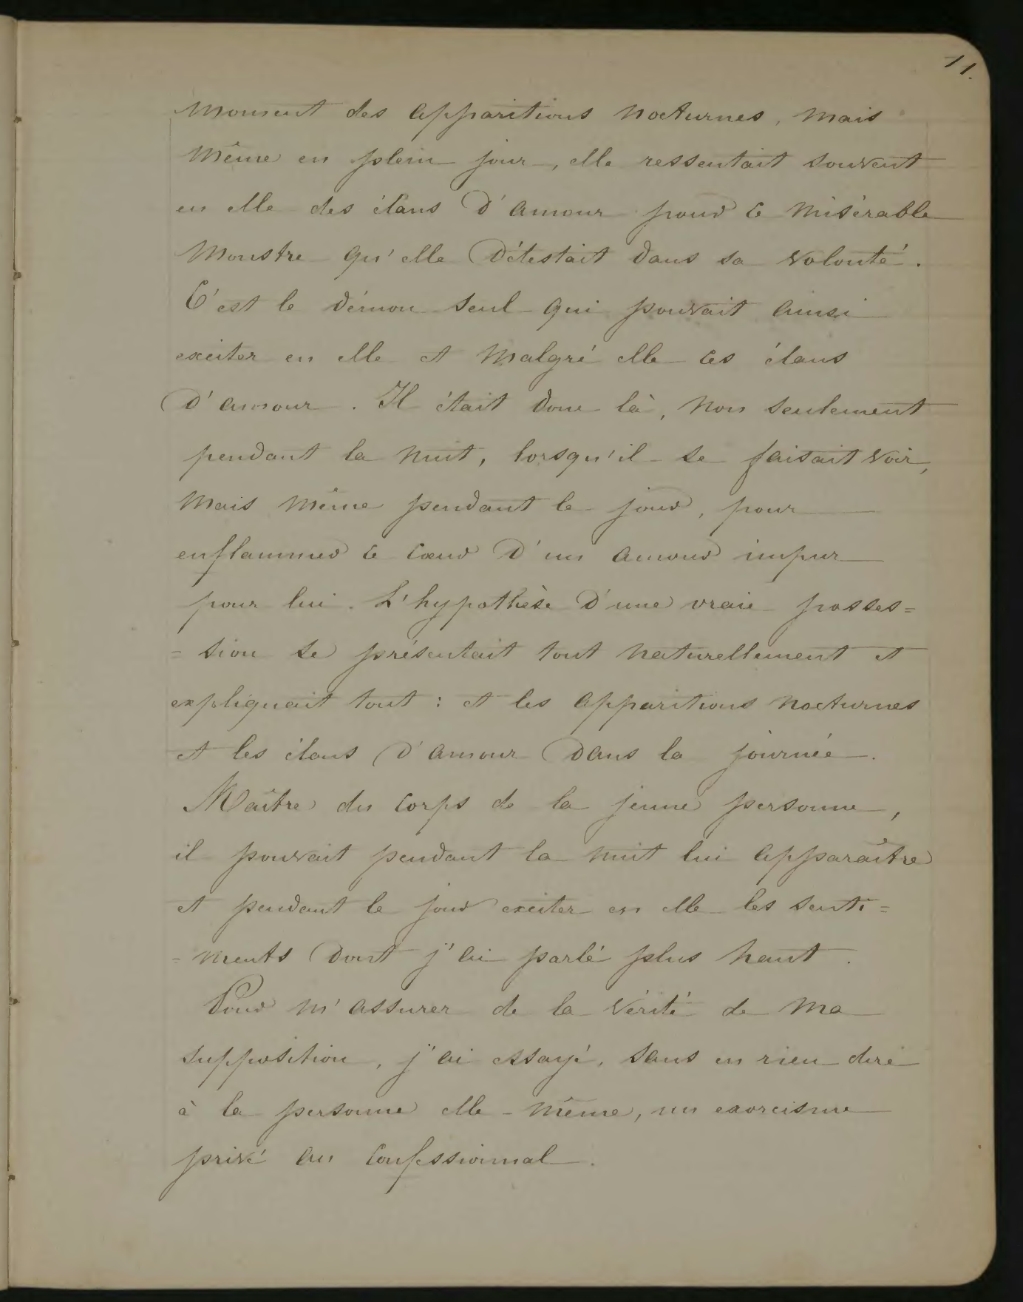 11.
moment des apparitions nocturnes, mais
même en plein jour, elle ressentait souvent
en elle des élans d'amour pour ce misérable
monstre qu'elle détestait dans sa volonté.
C'est le démon seul qui pouvait ainsi
exciter en elle et malgré elle ces élans
d'amour. Il était donc là, non seulement
pendant la nuit, lorsqu'il se faisait voir,
mais même pendant le jour, pour
enflammer ce cœur d'un amour impur
pour lui. L'hypothèse d'une vraie posses=
=sion se présentait tout naturellement et
expliquait tout : et les apparitions nocturnes
et les élans d'amour dans la journée.
Maître du corps de la jeune personne,
il pouvait pendant la nuit lui apparaître
et pendant le jour exciter en elle les senti=
=ments dont j'ai parlé plus haut.
Pour m'assurer de la vérité de ma
supposition, j'ai essayé, sans en rien dire
à la personne elle-même, un exorcisme
privé au confessionnal.